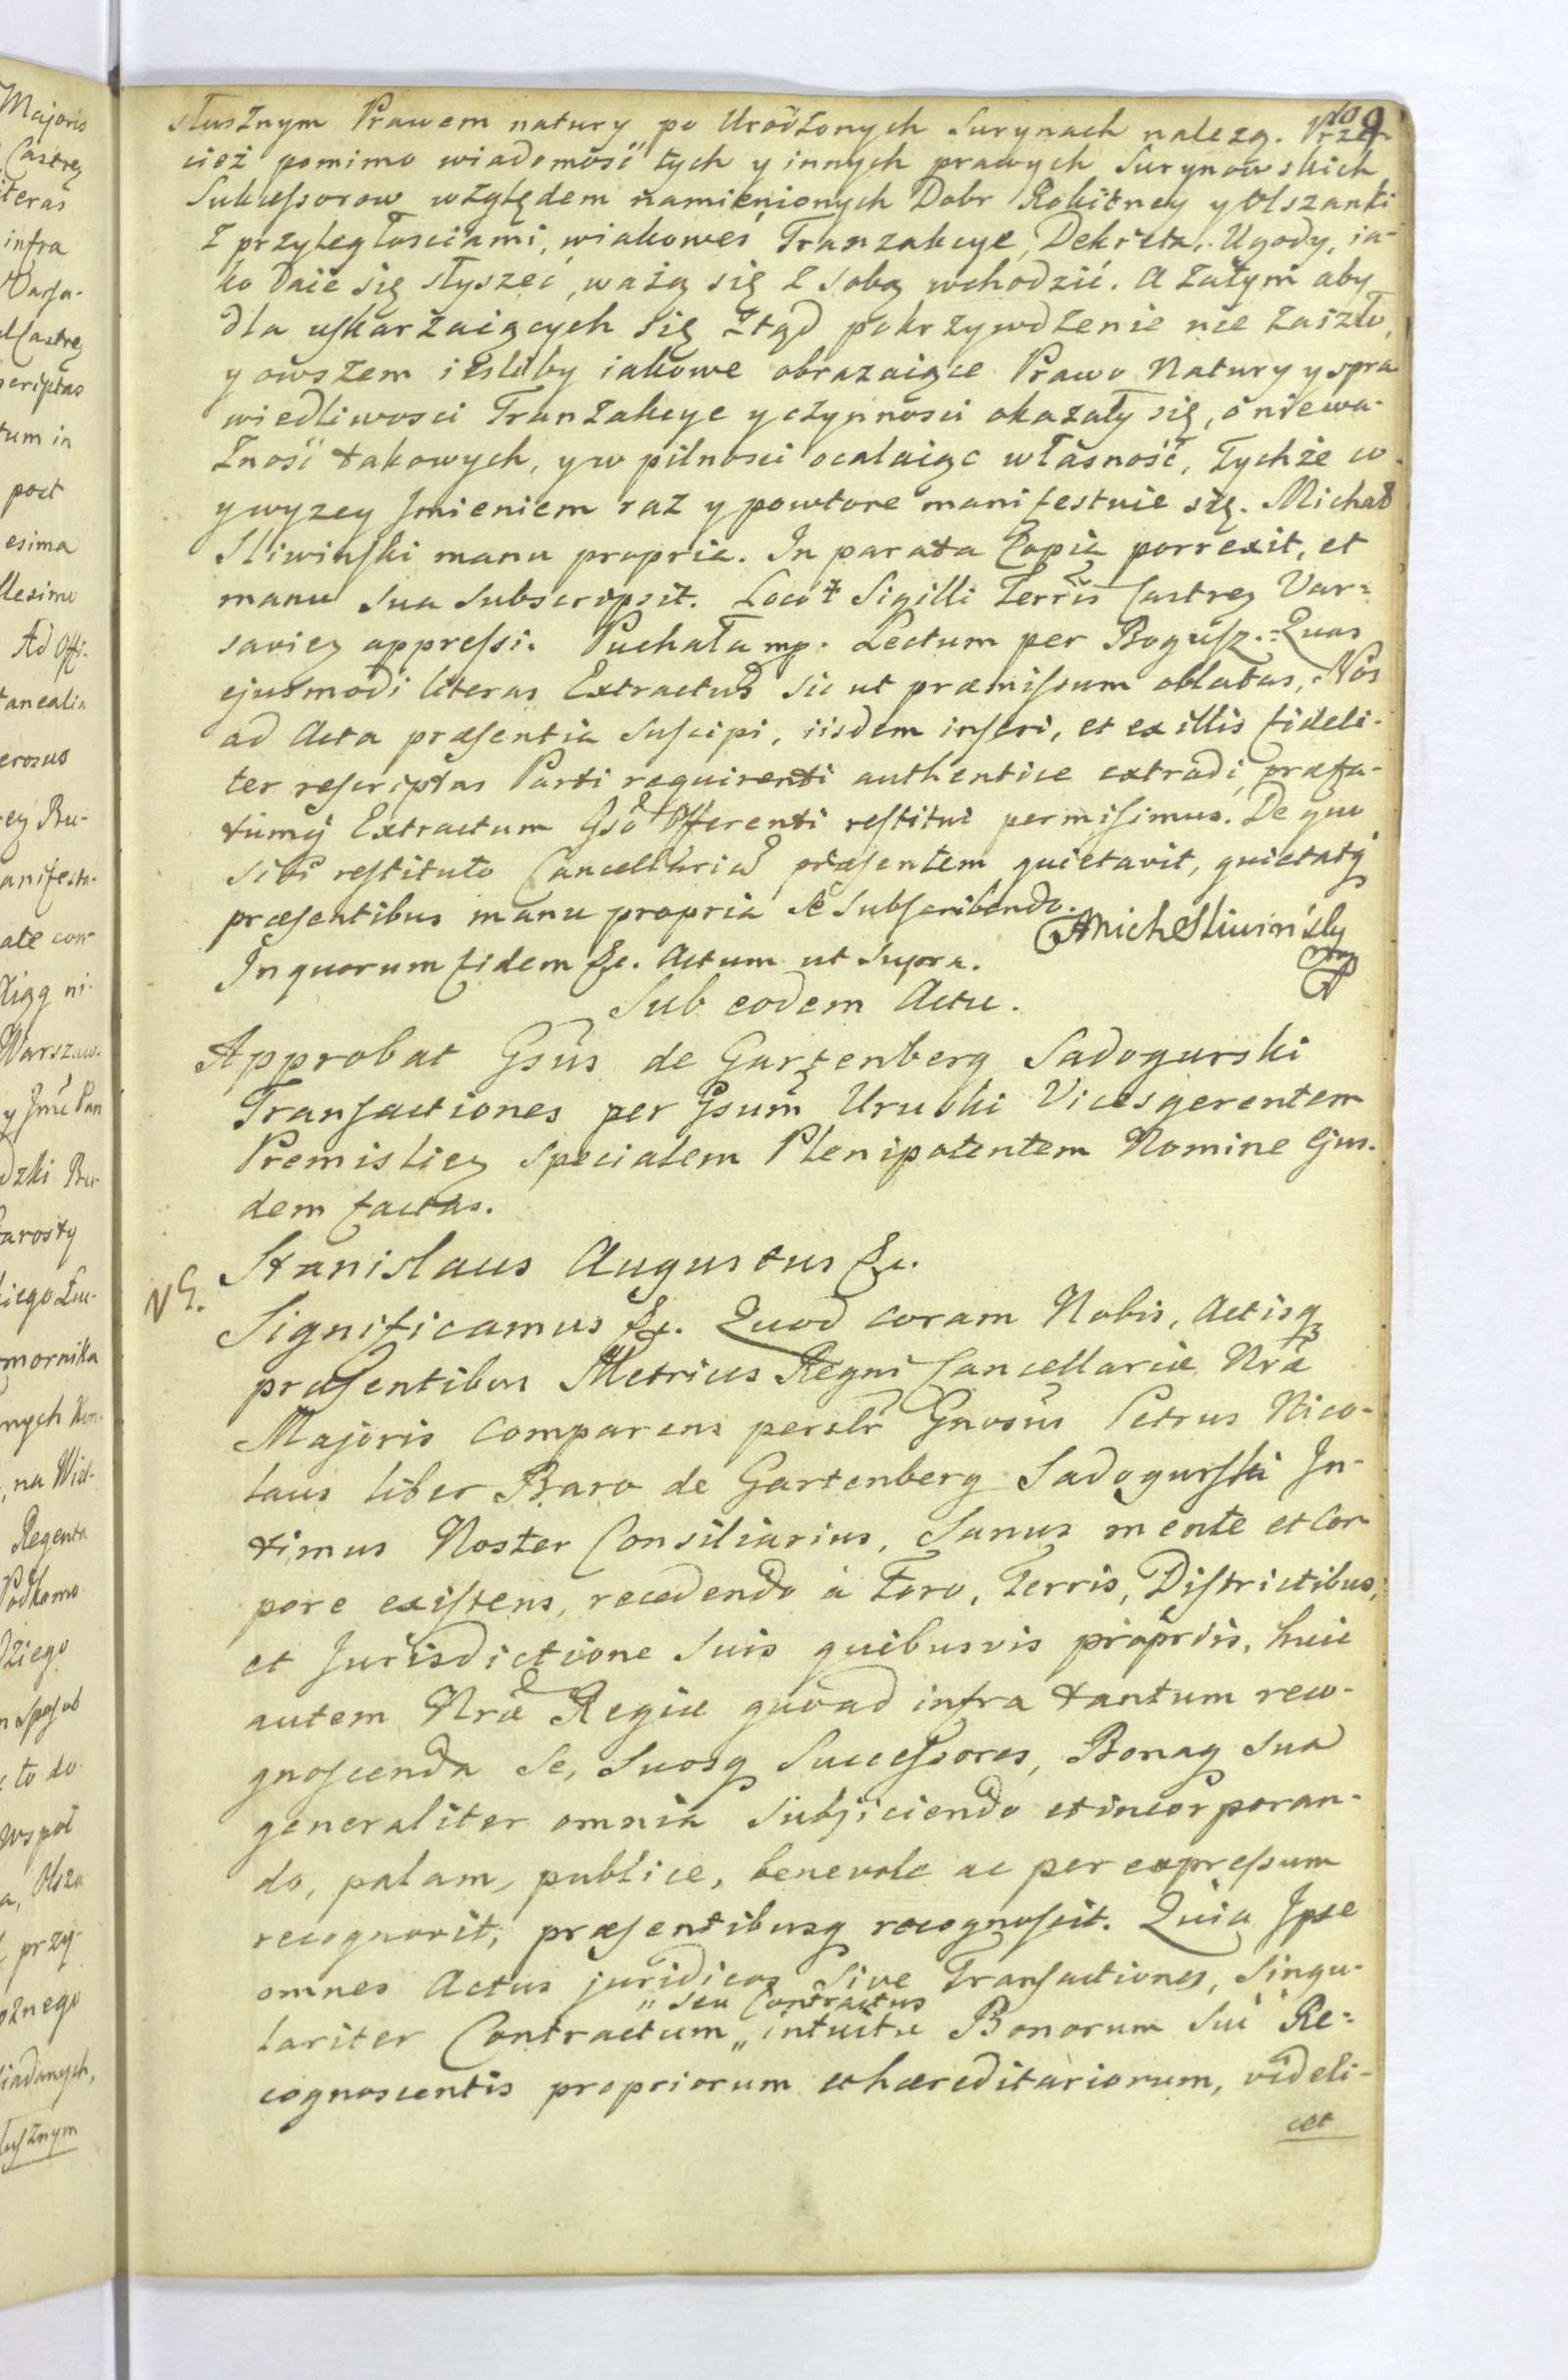 109
słusznym Prawem natury po Urodzonych Surynach nalezą. Prze-
cież pomimo wiadomość tych y innych prawych Surynowskich
Sukcessorow względem namienionych Dobr Rokitney y Olszanki
z przyległosciami, wiakoweś Tranzakcye, Dekreta, Ugody, ia-
ko daie się słyszeć, ważą się z sobą wchodzić. A zatym aby
dla uskarżaiących się ztąd pokrzywdzenie nie zaszło,
y owszem iesliby iakowe obrazaiące Prawo Natury y spra
wiedliwosci Tranzakcye y czynności okazały się, o niewa-
żność takowych, y w pilnosci ocalaiąc własność, tychże co
y wyzey Jmieniem raz y powtore manifestuie się. Michał
Sliwinski manu propria. In parata Copia porrexit, et
manu sua subscripsit. Loco Sigilli Terris Castrez Var=
saviez appressi. Puchała mp. Lectum per Bogusz. Quas
ejusmodi literas Extractus sic ut præmissum oblatas, Nos
ad Acta præsentia suscipi, iisdem inseri, et ex illis fideli-
ter rescriptas Parti requirenti authentice extradi, præfa-
tumq Extractum Gso Offerenti restitui permisimus. De quo
sibi restituto Cancellariam præsentem quietavit, quietatq
præsentibus manu propria se subscribendo.
Mich Sliwińsky
mp
In quorum fidem &c. Actum ut supra.
Sub eodem Actu.
Approbat Gsus de Gartenberg Sadogurski
Transactiones per Gsum Uruski Vicesgerentem
Premisliez specialem Plenipotentem Nomine Ejus-
dem factas.
Stanislaus Augustus &c.
NG.
Significamus &c. Quod coram Nobis, Actisq
præsentibus Metrices Regni Cancellariæ Nræ
Majoris comparens perslr Gnosus Petrus Nico-
laus liber Baro de Gartenberg Sadogurski In-
timus Noster Consiliarius, sanus mente et Cor-
pore existens, recedendo à Foro, Terris, Districtibus,
et Jurisdictione suis quibusvis propriis, huic
autem Nræ Regiæ quoad infra tantum reco-
gnoscenda se, suosq Successores, Bonaq sua
generaliter omnia subjiciendo et incorporan-
do, palam, publice, benevole ac per expressum
recognovit, præsentibusq recognoscit. Quia Ipse
omnes Actus juridicos sive Transactiones, singu-
„ seu Contractus
lariter Contractum „ intuitu Bonorum sui Re=
cognoscentis propriorum et hæreditariorum, videli-
cet